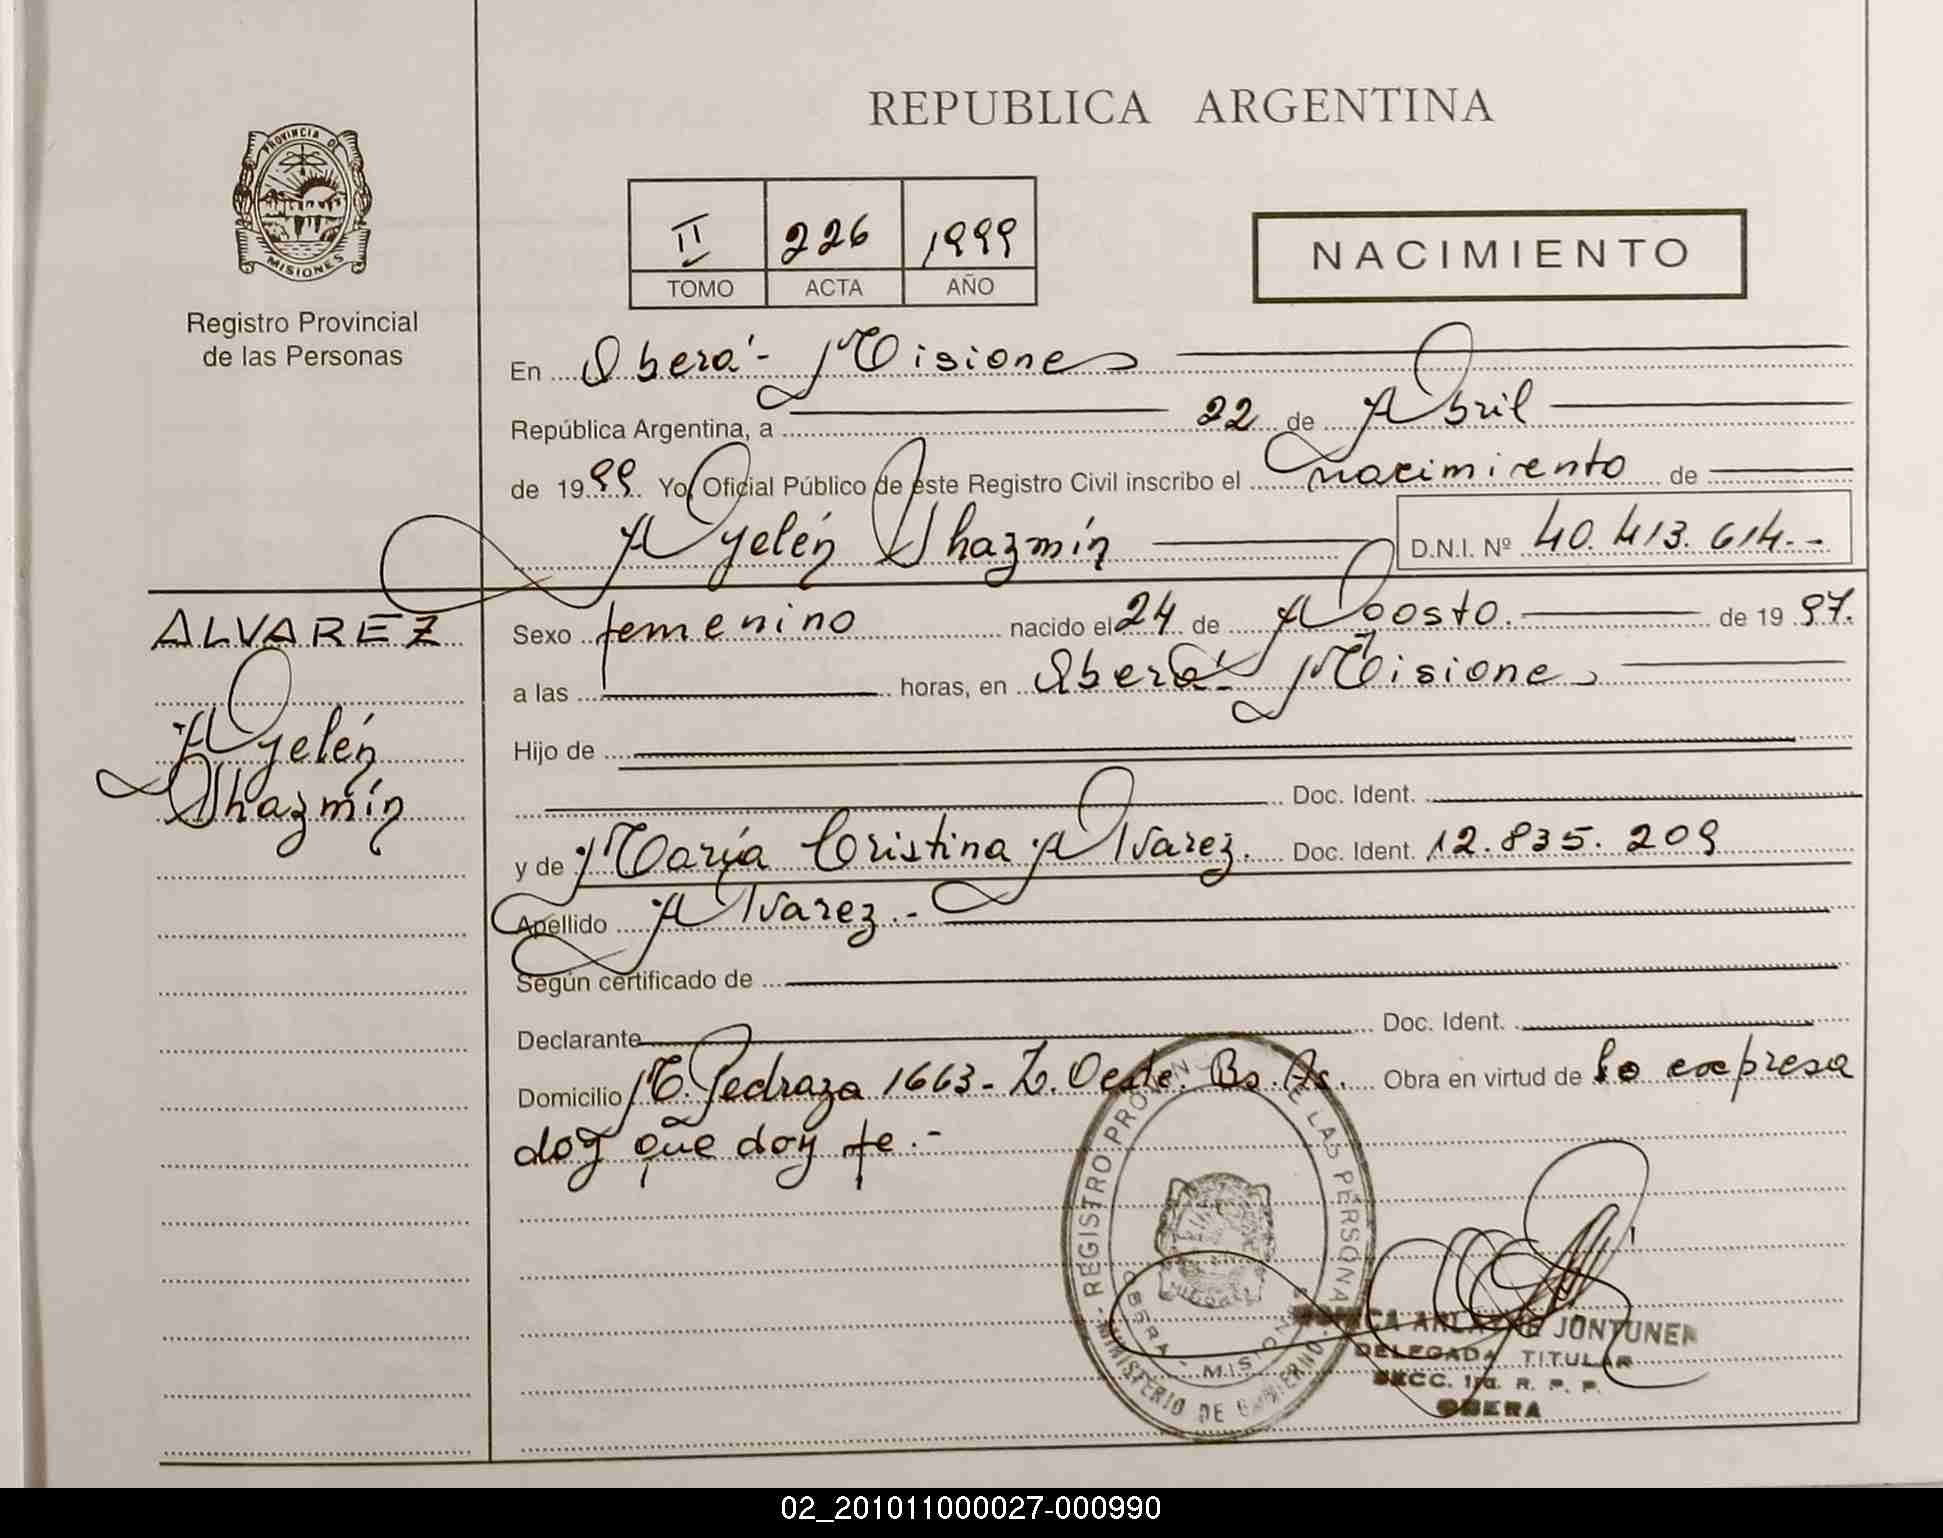 PROVINCIA D
MISIONES
Registro Provincial
de las Personas
REPUBLICA ARGENTINA
II 226 1999
TOMO ACTA AÑO
NACIMIENTO
En Oberá - Misiones
República Argentina, a 22 de Abril
de 1999. Yo, Oficial Público de este Registro Civil inscribo el nacimiento de
Ayelén Jhazmín D.N.I. Nº 40.413.614.-
ALVAREZ
Ayelén
Jhazmín
Sexo femenino nacido el 24 de Agosto. de 1997.
a las horas, en Oberá - Misiones
Hijo de
Doc. Ident.
y de María Cristina Alvarez. Doc. Ident. 12.835.209
Apellido Alvarez.-
Según certificado de
Declarante Doc. Ident.
Domicilio M. Pedraza 1663- Z. Oeste. Bs. As. Obra en virtud de lo expresa
doy que doy fe.-
REGISTRO PROVIN E LAS PERSONA
OBERA - MISION
MINISTERIO DE GOBIERNO
JONTUNEN
DELEGADA TITULAR
SECC. 1ra. R. P. P.
OBERA
02_201011000027-000990